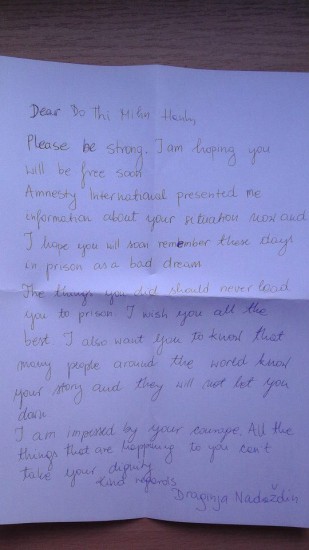 Dear Do Thi Minh Hanh,
Please be strong. I am hoping you
will be free soon
Amnesty International presented me
information about your situation now and
I hope you will soon remember these days
in prison as a bad dream
The things you did should never lead
you to prison. I wish you all the
best I also want you to know that
many people around the world know
your story and they will not let you
down
I am impressed by your courage. All the
things that are happening to you can't
take your dignity
kind regards
Draginja Nadaždin